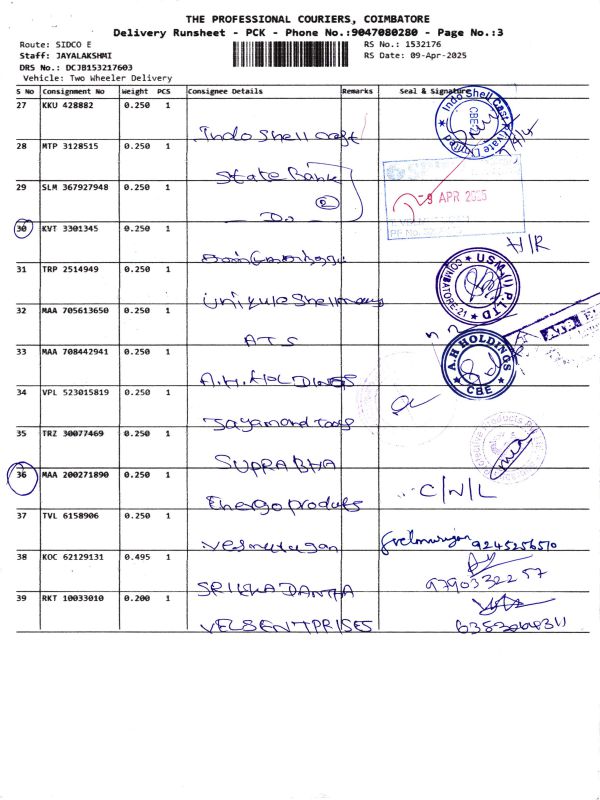 THE PROFESSIONAL COURIERS, COIMBATORE
Delivery Runsheet - PCK - Phone No.:9047080280 - Page No.:3
Route: SIDCO E
RS No.: 1532176
Staff: JAYALAKSHMI
RS Date: 09-Apr-2025
DRS No.: DCJB153217603
Vehicle: Two Wheeler Delivery
S No Consignment No Weight PCS Consignee Details Remarks Seal & Signature
27 KKU 428882 0.250 1 Indo Shell
Indo Shell Cast Private Limited CBE
28 MTP 3128515 0.250 1 State Bank
29 SLM 367927948 0.250 1 - Do - 2
9 APR 2025
30 KVT 3301345 0.250 1
31 TRP 2514949 0.250 1
USM (I) P. LTD COIMBATORE-21
32 MAA 705613650 0.250 1 ATS
33 MAA 708442941 0.250 1 A.H. HOLDINGS
A.H HOLDINGS CBE
34 VPL 523015819 0.250 1
35 TRZ 30077469 0.250 1 SUPRABHA
36 MAA 200271890 0.250 1 Energo C/N/L
37 TVL 6158906 0.250 1 Velmurugan
9245256510
38 KOC 62129131 0.495 1
9790332257
39 RKT 10033010 0.200 1